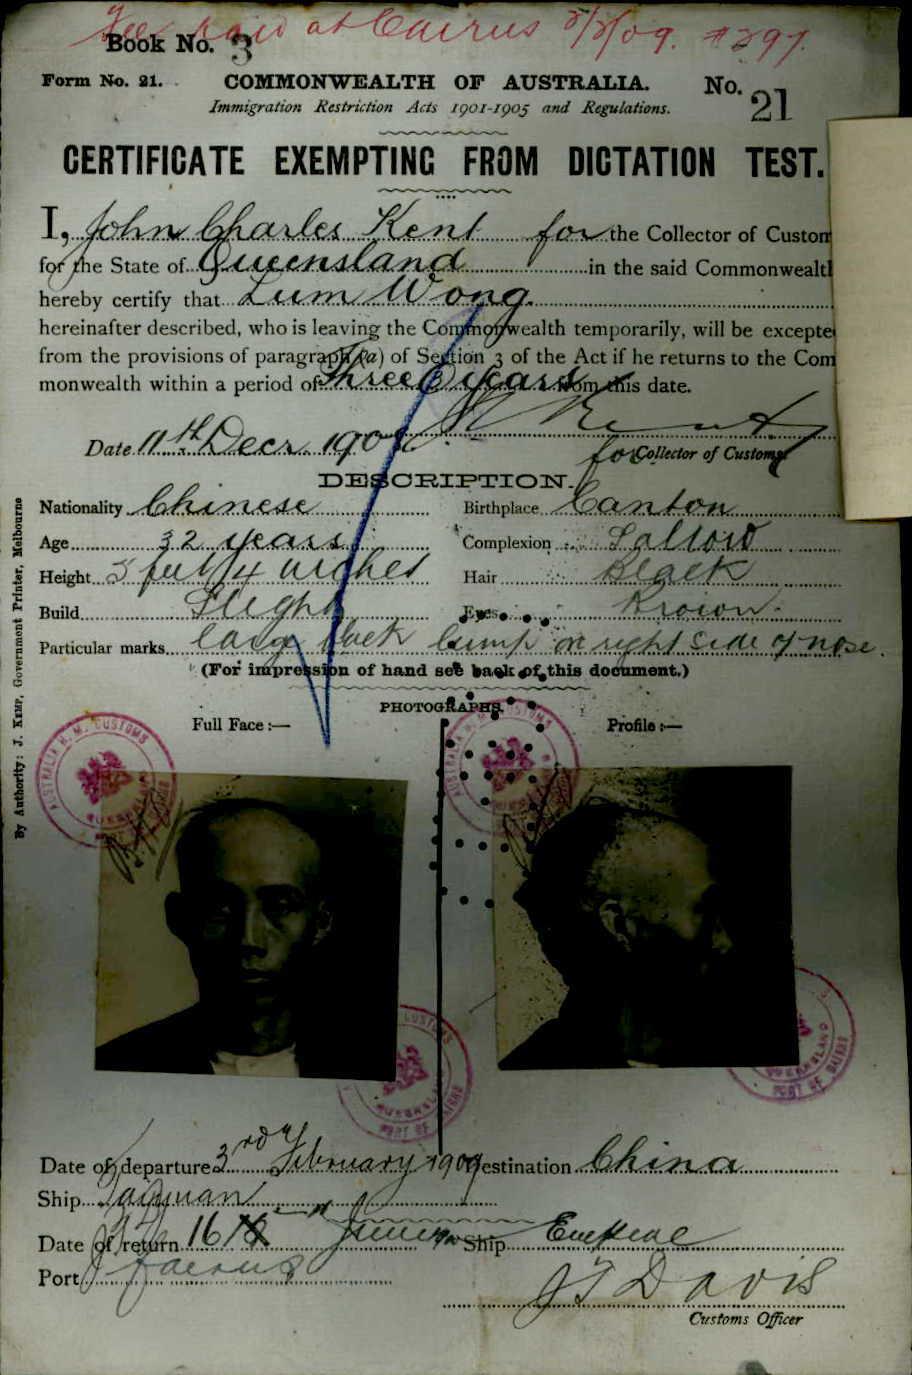 Fee paid at Cairns 3/2/09. #297.
Book No. 3
Form No. 21. COMMONWEALTH OF AUSTRALIA. No. 21
Immigration Restriction Acts 1901-1905 and Regulations.
CERTIFICATE EXEMPTING FROM DICTATION TEST.
I, John Charles Kent for the Collector of Custom
for the State of Queensland in the said Commonwealt
hereby certify that Lum Wong.
hereinafter described, who is leaving the Commonwealth temporarily, will be excepte
from the provisions of paragraph (a) of Section 3 of the Act if he returns to the Com
monwealth within a period of Three years from this date.
Date 11th Decr. 190
for Collector of Customs
DESCRIPTION.
Nationality Chinese Birthplace Canton
Age 32 years Complexion Sallow
Height 5 feet 4 inches Hair Black
Build Slight Eyes Brown.
Particular marks large black lump on right side of nose.
(For impression of hand see back of this document.)
PHOTOGRAPHS.
Full Face :— Profile :—
By Authority: J. KEMP, Government Printer, Melbourne
AUSTRALIA H. M. CUSTOMS QUEENSLAND
AUSTRALIA H. M. CUSTOMS
CUSTOMS QUEENSLAND PORT OF CAIRNS
QUEENSLAND PORT OF CAIRNS
Date of departure 3rd February 1909 Destination China
Ship Taiyuan
Date of return 16 Ship Empire
Port Cairns
J T Davis
Customs Officer